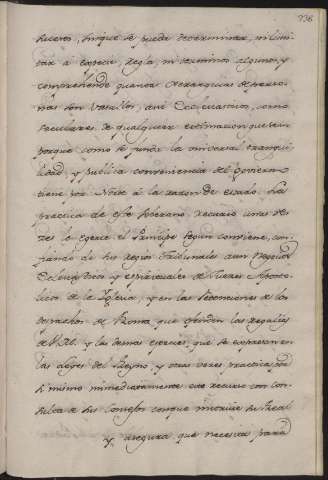 736
sucesos, sin que se pueda determinar, ni limi-
tar à especie, regla, ni terminos algunos, y
comprehende quantas Gerarquias de perso-
nas son Vasallos, asi Eclesiasticos, como
seculares, de qualquiera estimacion que sean
porque como se funda la universal tranqui-
lidad, y publica conveniencia del Govierno
tiene por Norte à la razon de estado. La
practica de este soberano recurso unas ve-
zes le egerce el Principe segun conviene,
fiando de sus Regios Tribunales aun Negocios
Eclesiasticos y espirituales de Juezes Aposto-
licos de la Iglesia, y en las retenciones de los
despachos de Roma que ofenden las regalias
de V.M. y las demas especies, que se expresan en
las leyes del Reyno, y otras vezes practica por
si mismo inmediatamente este recurso con con-
sulta de sus Consejos conque instruie su Real
y asegura, que necesita para